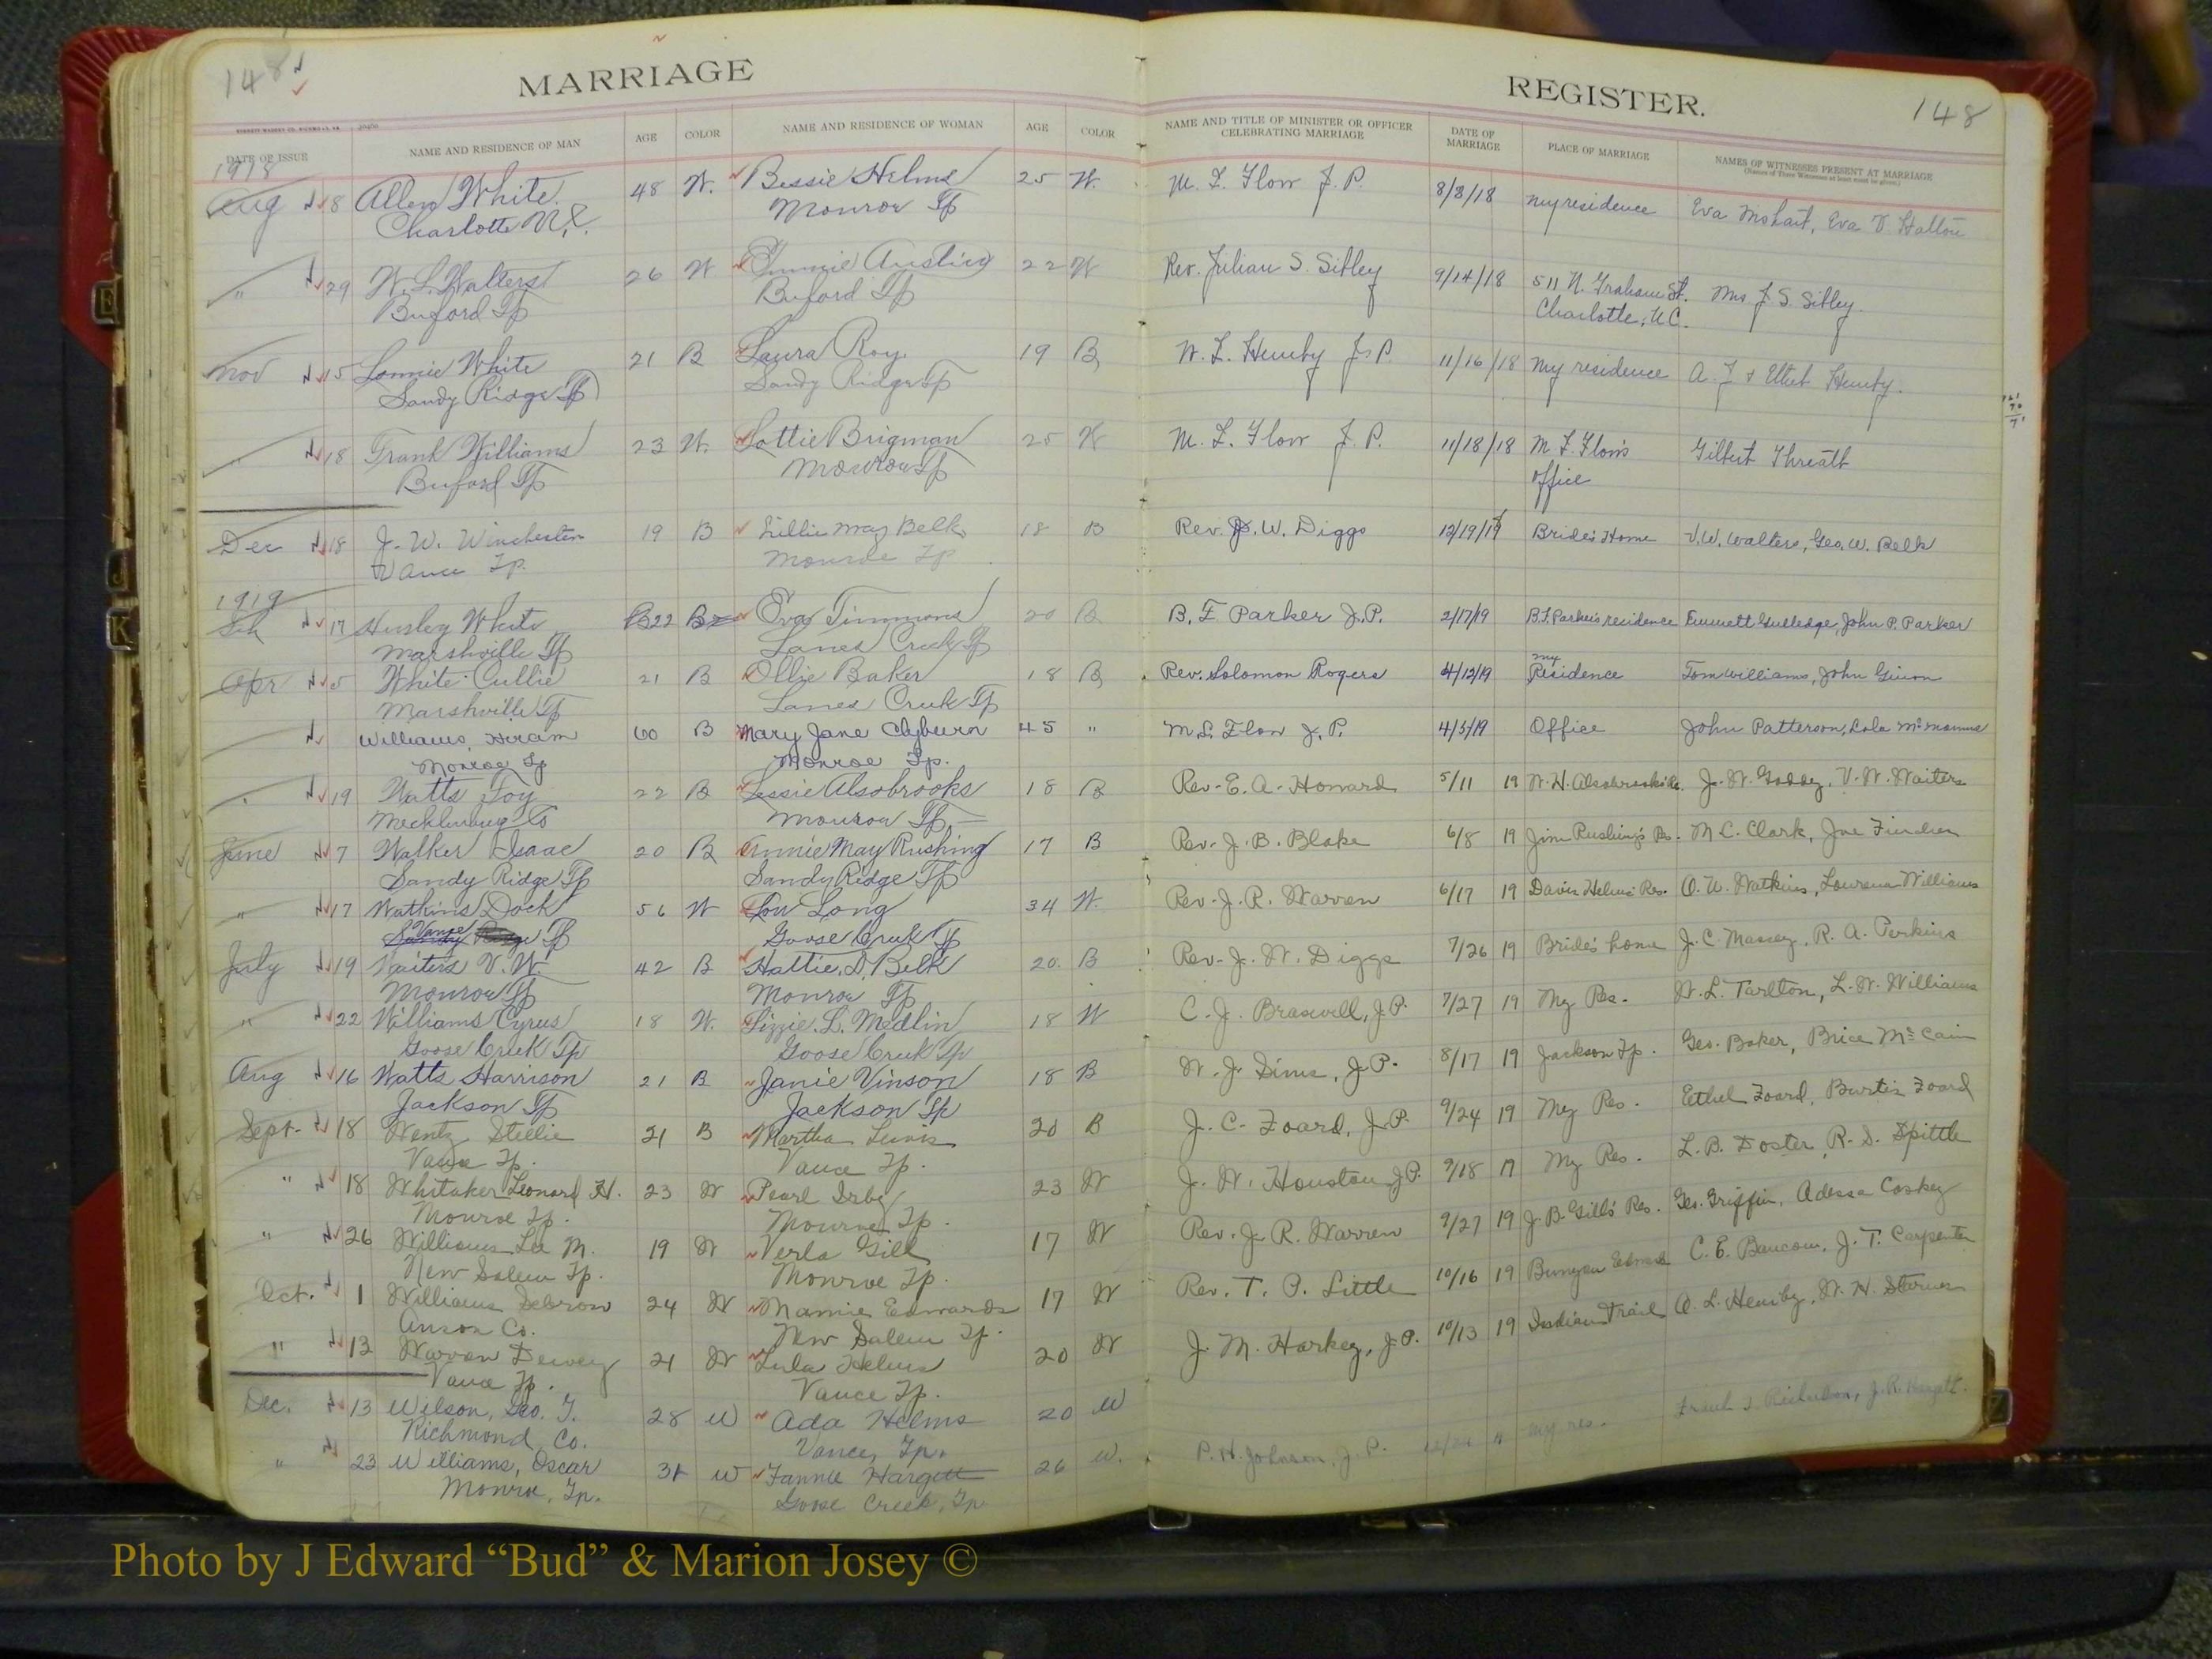 148
MARRIAGE
REGISTER.
148
DATE OF ISSUE NAME AND RESIDENCE OF MAN AGE COLOR NAME AND RESIDENCE OF WOMAN AGE COLOR NAME AND TITLE OF MINISTER OR OFFICER CELEBRATING MARRIAGE DATE OF MARRIAGE PLACE OF MARRIAGE NAMES OF WITNESSES PRESENT AT MARRIAGE
1918
Aug 8 Allen White 48 W. Bessie Helms 25 W. M. L. Flow J. P. 8/8/18 my residence Eva
Charlotte N.C. Monroe Tp
" 29 W. L. Walters 26 W Austin 22 W Rev. Julian S. Sibley 9/14/18 511 N. Graham St. Mrs J. S. Sibley.
Buford Tp Buford Tp Charlotte, N.C.
Nov 15 Lonnie White 21 B Laura Roy 19 B W. L. Hemby J. P. 11/16/18 my residence A. J. & Ethel Hemby.
Sandy Ridge Tp Sandy Ridge Tp
" 18 Frank Williams 23 W. Lottie Brigman 25 W M. L. Flow J. P. 11/18/18 M L Flow's Gilbert Threatt
Buford Tp Monroe Tp office
Dec 18 J. W. Winchester 19 B Lillie May Belk 18 B Rev. J. W. Diggs 12/19/18 Bride's Home V. W. Walters, Geo. W. Belk
Vance Tp. Monroe Tp
1919
17 Husley White 22 B Eva Timmons 20 B B. F. Parker J. P. 2/17/19 B. F. Parker's residence Emmett Gulledge, John P. Parker
Marshville Tp Lanes Creek Tp
Apr 5 White Cullie 21 B Ollie Baker 18 B Rev. Solomon Rogers 4/12/19 my Residence Tom Williams, John
Marshville Tp Lanes Creek Tp
Williams, Hiram 60 B Mary Jane Clyburn 45 " M. L. Flow J. P. 4/5/19 Office John Patterson, Lola McManus
Monroe Tp Monroe Tp.
" 19 Watts Foy 22 B Lessie Alsobrooks 18 B Rev. E. A. Howard 5/11 19 W. H. Alsobrooks Re. J. W. V. W. Waiters
Mecklenburg Co Monroe Tp
June 7 Walker Isaac 20 B Annie May Rushing 17 B Rev. J. B. Blake 6/8 19 Jim Rushing's Res. M C. Clark, Joe
Sandy Ridge Tp Sandy Ridge Tp
" 17 Watkins Dock 56 W Lou Long 34 W. Rev. J. R. Warren 6/17 19 Davis Helms Res. O. W. Watkins, Lourena Williams
Vance Tp Goose Creek Tp
July 19 Waiters V. W. 42 B Hattie D. Belk 20 B Rev. J. W. Diggs 7/26 19 Bride's home J. C. Massey, R. A. Perkins
Monroe Tp Monroe Tp
" 22 Williams Cyrus 18 W. Lizzie L. Medlin 18 W C. J. Braswell, J. P. 7/27 19 My Res. W. L. Tarlton, L. W. Williams
Goose Creek Tp Goose Creek Tp
Aug 16 Watts Harrison 21 B Janie Vinson 18 B W. J. Sims, J. P. 8/17 19 Jackson Tp. Geo. Baker, Brice McCain
Jackson Tp Jackson Tp
Sept. 18 Wentz Stellie 21 B Martha Lewis 20 B J. C. Foard, J. P. 9/24 19 My Res. Ethel Foard, Burtis Foard
Vance Tp. Vance Tp.
" 18 Whitaker Leonard H. 23 W Pearl Irby 23 W J. W. Houston J. P. 9/18 19 My Res. L. B. Doster, R. S. Spittle
Monroe Tp. Monroe Tp.
" 26 Williams Lee M. 19 W Verla Gill 17 W Rev. J. R. Warren 9/27 19 J. B. Gill's Res. Geo. Griffin, Adessa Caskey
New Salem Tp. Monroe Tp.
Oct. 1 Williams 24 W Mamie Edwards 17 W Rev. T. P. Little 10/16 19 Bunyan Edwards C. E. Baucom, J. T. Carpenter
Anson Co. New Salem Tp.
" 13 Warren Dewey 21 W Lula Helms 20 W J. M. Harkey, J. P. 10/13 19 Indian Trail A. L. Hemby, W. H.
Vance Tp. Vance Tp.
Dec. 13 Wilson, Geo. T. 28 W Ada Helms 20 W
Richmond Co. Vance, Tp.
" 23 Williams, Oscar 31 W Fannie Hargett 26 W. P. H. Johnson, J. P. my res. J. R. Hargett.
Monroe, Tp. Goose Creek, Tp
Photo by J Edward “Bud” & Marion Josey ©